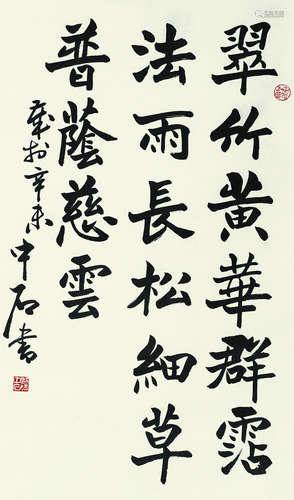 翠竹黄華群霑
法雨長松細草
普蔭慈雲
歲於辛未中石書